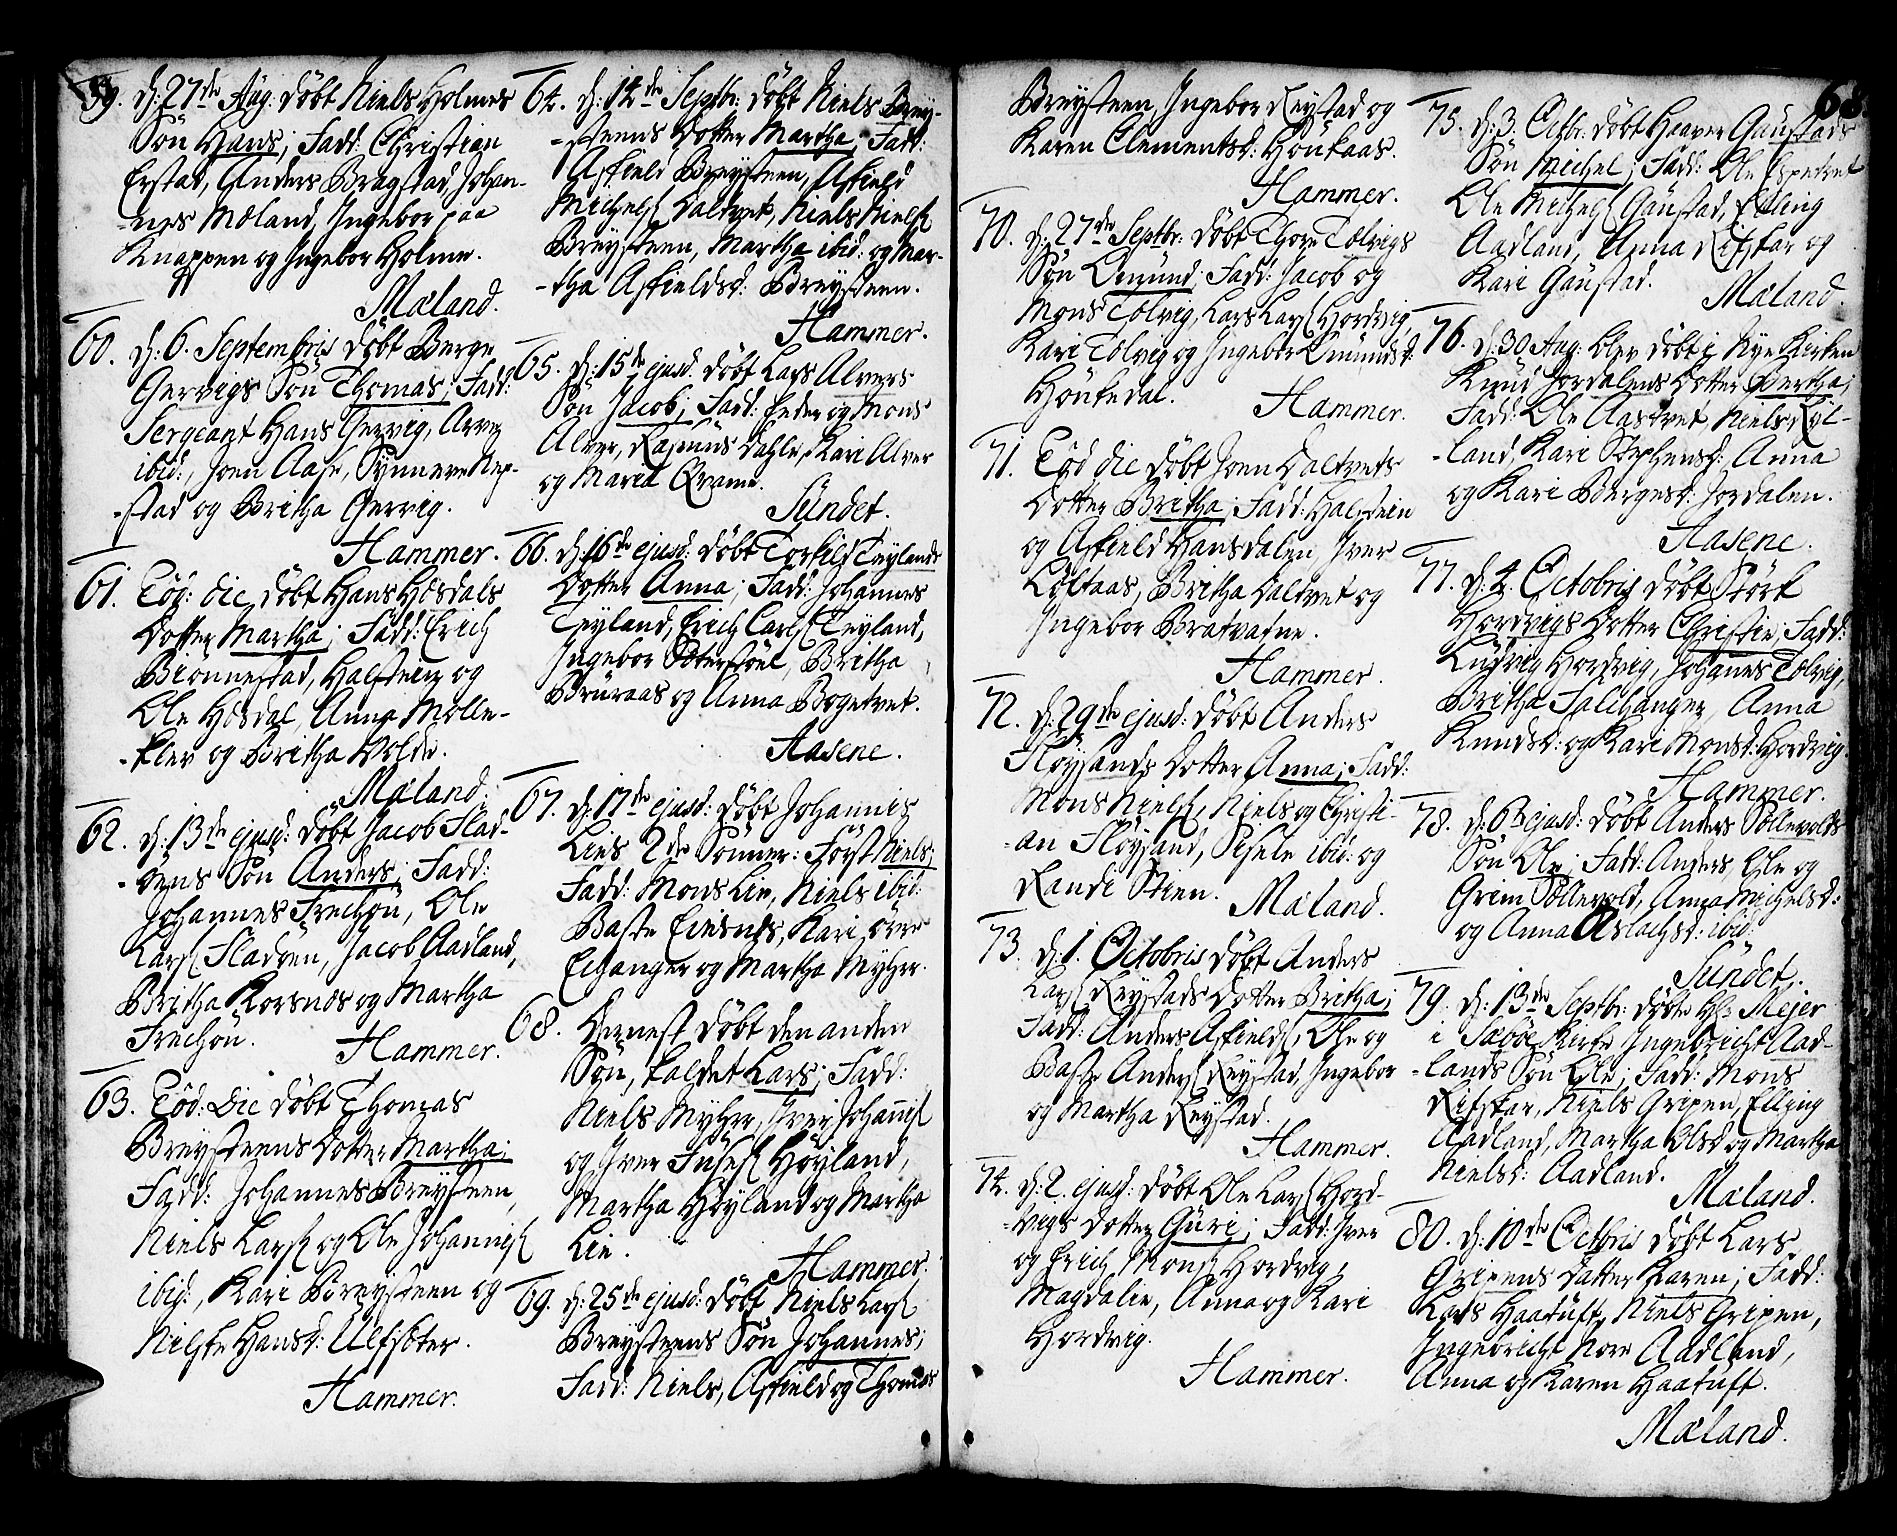 59. d: 27de Aug: döbt Niels Holmes
Sön Hans; Fadd: Christian
Erstad, Anders Bragstad, Johan-
-nes Mæland, Ingebor paa
Knappen og Ingebor Holme.
Mæland.
60. d: 6. Septembris döbt Berge
Gervigs Sön Thomas; Fadd:
Sergeant Hans Gervig, Arve
ibid:, Joen Aase, Synneve Nep-
-stad og Britha Gervig.
Hammer.
61. Eod: die döbt Hans Hosdals
Dotter Martha; Fadd: Erich
Bionnestad, Halstein og
Ole Hosdal, Anna Molle-
-klev og Britha Volde.
Mæland.
62. d: 13de ejusd: döbt Jacob Flad-
-öens Sön Anders; Fadd:
Johannes Frechöu, Ole
Lars Fladöen, Jacob Aadland,
Britha Korsnæs og Martha
Frechöu.
Hammer.
63. Eod: die döbt Thomas
Breysteens Dotter Martha;
Fadd: Johannes Breysteen,
Niels Lars og Ole Johannis
ibid:, Kari Breysteen og
Nilske Hansd: Ulfsketer.
Hammer.
64. d: 14de Septbr: döbt Niels Brey-
-steens Dotter Martha; Fadd:
Askield Breysteen, Askield
Michels Daltvet, Niels Niels
Breysteen, Martha ibid: og Mar-
-tha Askieldsd: Breysteen.
Hammer.
65. d: 15de ejusd: döbt Lars Alvers
Sön Jacob; Fadd: Peder og Mons
Alver, Rasmus Dahle, Kari Alver
og Marta Qvame.
Sundet.
66. d: 16de ejusd: döbt Torkild Teylands
Dotter Anna; Fadd: Johannes
Teyland, Erich Carls Teyland,
Ingebor Soterstöel, Britha
Bruraas og Anna Bogetvet.
Aasene.
67. d: 17de ejusd: döbt Johannis
Lies 2de Sönner: Först Niels;
Fadd: Mons Lie, Niels ibid:
Baste Eiesnes, Kari övre
Echanger og Martha Myhre.
68. Dernest döbt den anden
Sön, kaldet Lars; Fadd:
Niels Myhre, Iver Johannis
og Iver Fuses Höyland,
Martha Höyland og Martha
Lie.
Hammer.
69. d: 25de ejusd: döbt Niels Lars
Breysteens Sön Johannes;
Fadd: Niels, Askield og Thomas
68.
Breysteen, Ingebor Reystad og
Karen Clementsd: Höukaas.
Hammer.
70. d: 27de Septbr: döbt Thore Tolvigs
Sön Omund; Fadd: Jacob og
Mons Tolvig, Lars Lars Hordvig,
Kari Tolvig og Ingebor Omundsd:
Höukedal.
Hammer.
71. Eod die döbt Joen Daltvets
Dotter Britha; Fadd: Halstein
og Askield Hansdalen, Iver
Löftaas, Britha Daltvet og
Ingebor Bratvatne.
Hammer.
72. d: 29de ejusd: döbt Anders
Flöysands Dotter Anna; Fadd:
Mons Niels, Niels og Christi-
-an Flöysand, Sisele ibid: og
Randi Stien.
Mæland.
73. d: 1. Octobris döbt Anders
Lars Reystads Dotter Britha;
Fadd: Anders Askields, Ole og
Baste Anders Reystad, Ingebor
og Martha Reystad.
Hammer.
74. d: 2. ejusd: döbt Ole Lars Hord-
-vigs Dotter Guri; Fadd: Iver
og Erich Mons Hordvig,
Magdalie, Anna og Kari
Hordvig.
Hammer.
75. d: 3. Octbr: döbt Haaver Gaustads
Sön Michel; Fadd: Ole Espetvet
Ole Michels Gaustad, Elling
Aadland, Anna Rifskar og
Kari Gaustad.
Mæland.
76. d: 30 Aug: blev döbt i Nye Kirken
Knud Jordalens Dotter Bertha;
Fadd: Ole Aastvet, Niels Ryl-
-land, Kari Stephensd: Anna
og Kari Bergesd: Jordalen.
Aasene.
77. d: 4. Octobris döbt Störk
Hordvigs Dotter Christie; Fadd:
Ludvig Hordvig, Johannes Tolvig,
Britha Salhanger, Anna
Knudsd: og Kari Monsd: Hordvig.
Hammer.
78. d: 6te ejusd: döbt Anders Söllevolds
Sön Ole; Fadd: Anders, Ole og
Grim Söllevold, Anna Michelsd:
og Anna Aslachsd: ibid:
Sundet.
79. d: 13de Septbr: döbte Hr: Mejer
i Sæböe Kirke Ingebricht Aad-
-lands Sön Ole; Fadd: Mons
Rifskar, Niels Gripen, Elling
Aadland, Martha Olsd og Martha
Nielsd: Aadland.
Mæland.
80. d: 10de Octbris döbt Lars
Gripens Datter Karen; Fadd:
Lars Haatuft, Niels Gripen,
Ingebricht Nore Aadland,
Anna og Karen Haatuft.
Mæland.